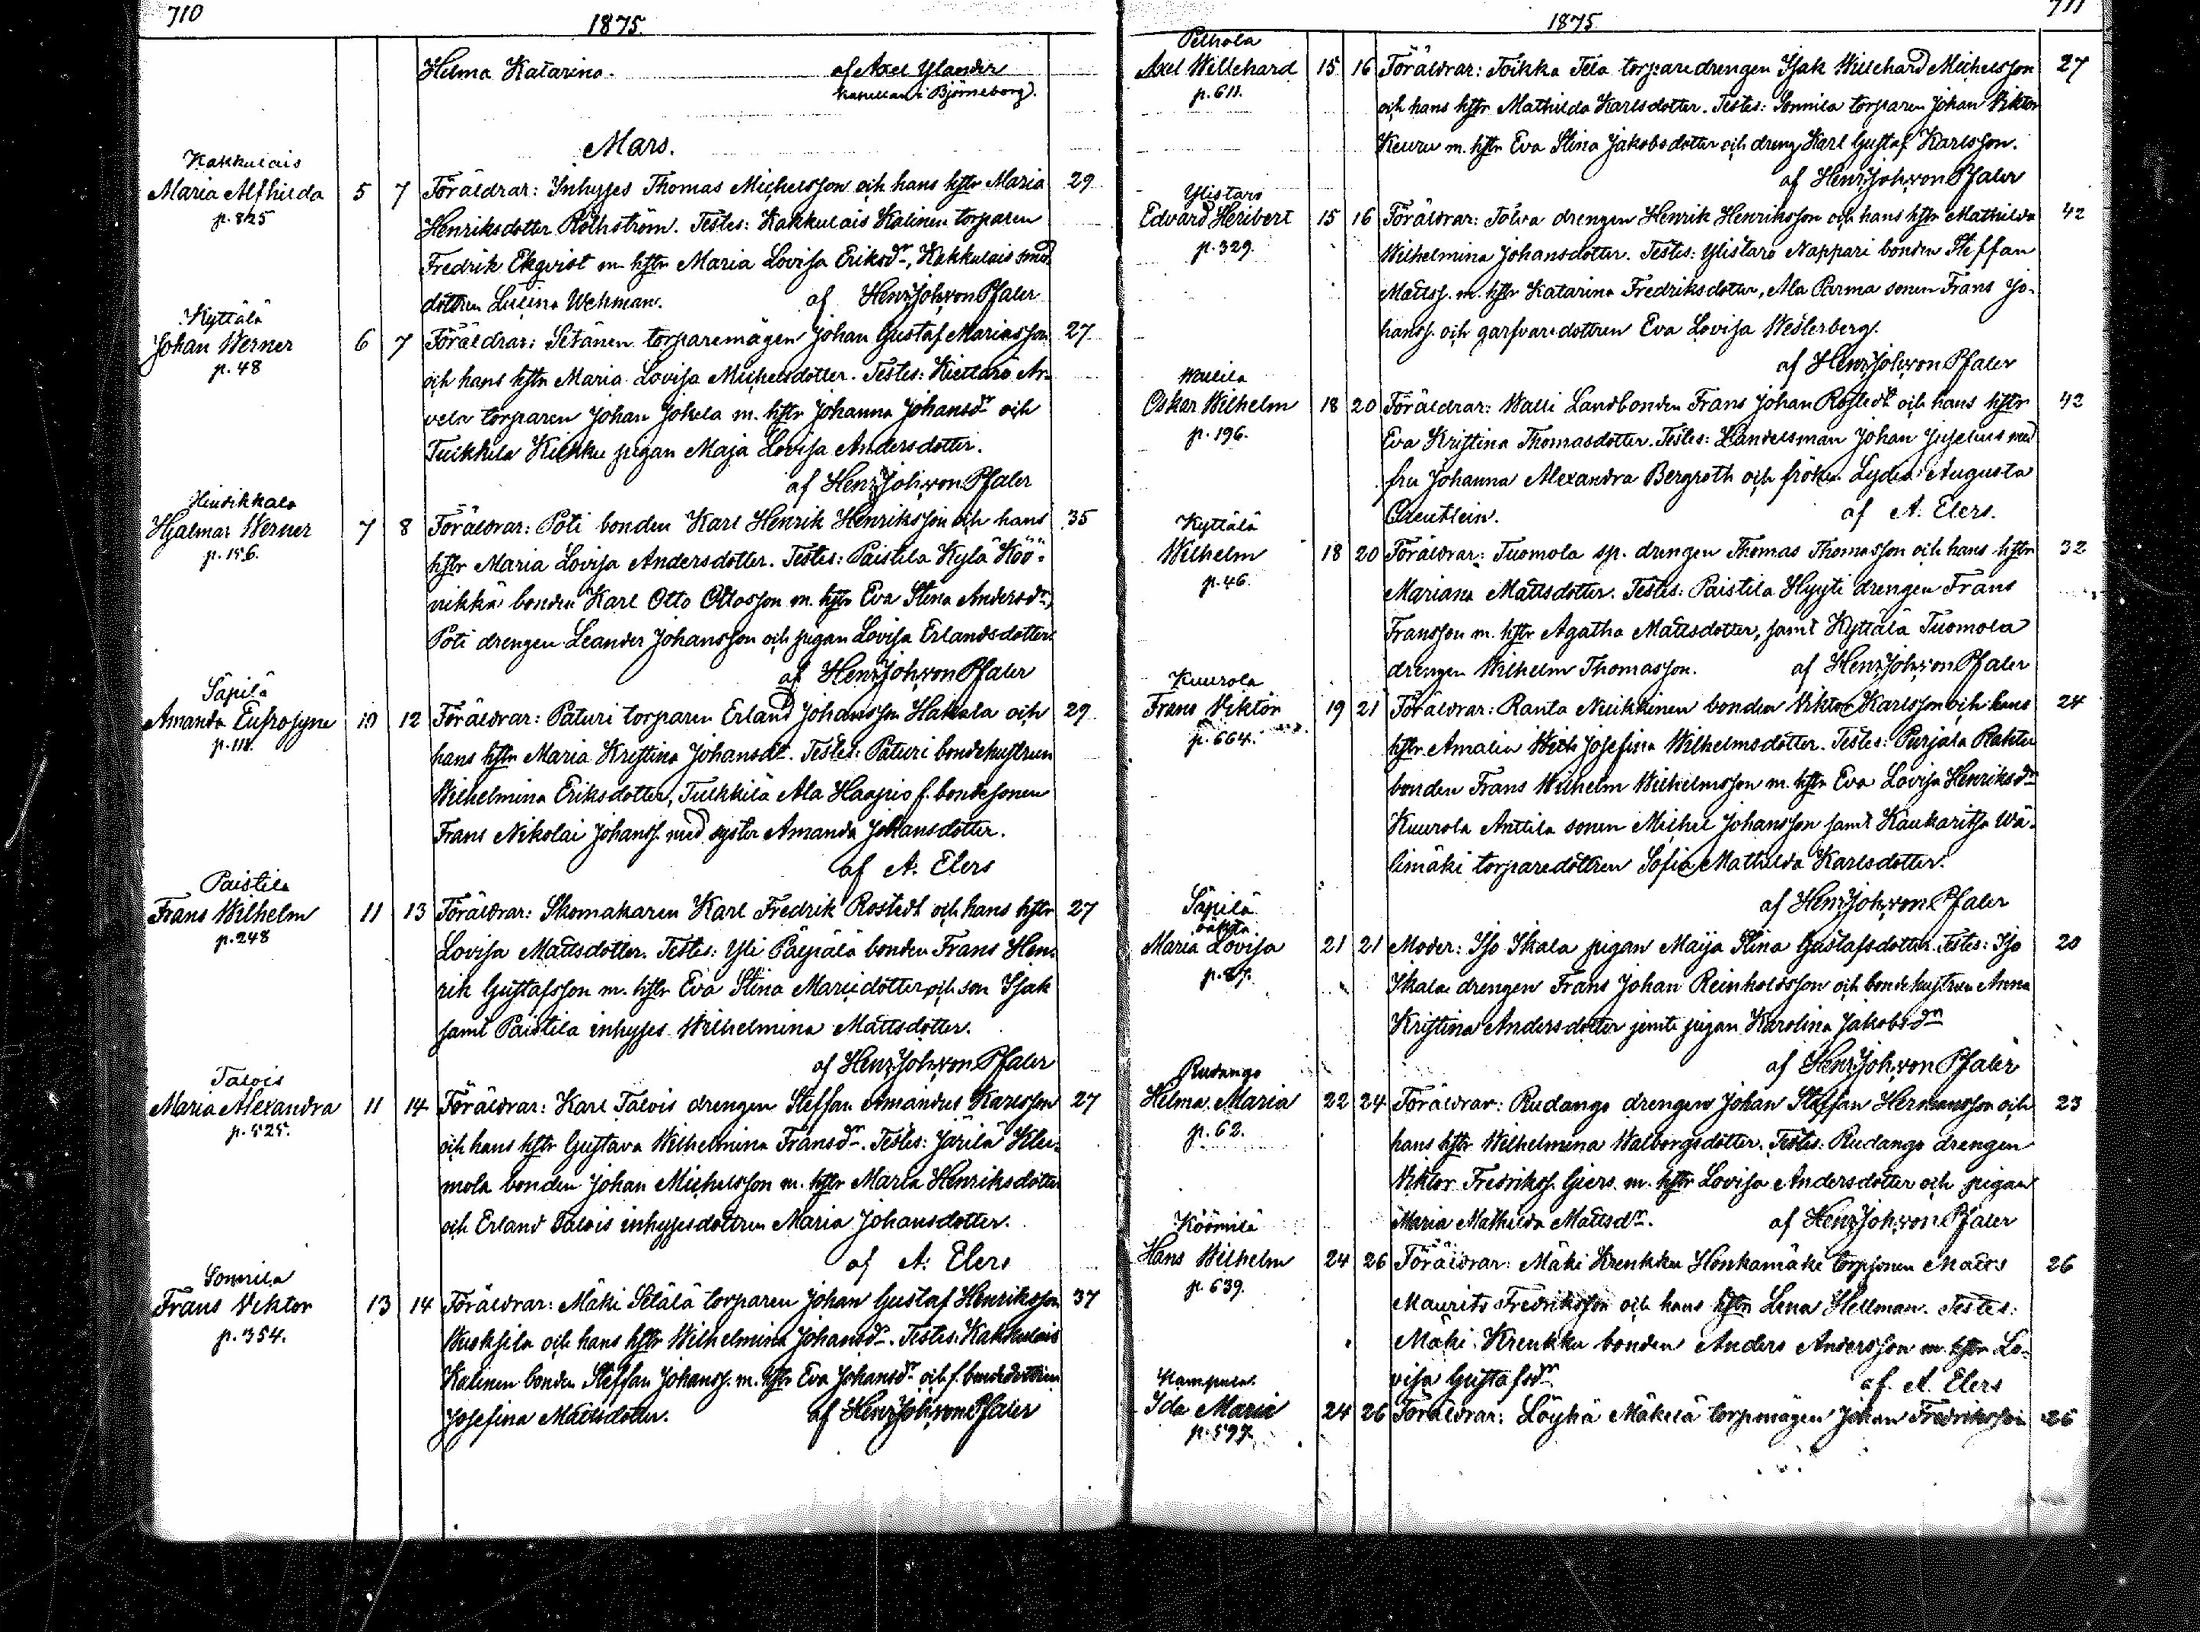 710
1875
Helma Katarina. af Axel Ylander
kapellan i Björneborg).
Mars.
Kakkulais
Maria Alfhilda 5 7 Föräldrar: Inhyses Thomas Michelsson och hans hstr Maria 29
p. 825 Henriksdotter Röthström. Testes: Kakkulais Kalinen torparen
Fredrik Ekqvist m. hstr Maria Lovisa Eriksdr, Kakkulais
dottren Lisina Wehman. af Henr. Joh. von Pfaler
Kyttälä
Johan Werner 6 7 Föräldrar: Setänen torparemågen Johan Gustaf Mariasson 27
p. 48 och hans hstr Maria Lovisa Michelsdotter. Testes: Kiettare Ar-
vela torparen Johan Jokela m. hstr Johanna Johansdr och
Tuikkila Kikku pigan Maja Lovisa Andersdotter.
af Henr. Joh. von Pfaler
Hinrikkala
Hjalmar Werner 7 8 Föräldrar: Poti bonden Karl Henrik Henriksson och hans 35
p. 156. hstr Maria Lovisa Andersdotter. Testes: Paistila Kylä Köö-
nikkä bonden Karl Otto Ottosson m. hstr Eva Stina Andersdr,
Poti drengen Leander Johansson och pigan Lovisa Erlandsdotter
af Henr. Joh. von Pfaler
Säpilä
Amanda Eufrosyne 10 12 Föräldrar: Paturi torparen Erland Johansson Hakala och 29
p. 111. hans hstr Maria Kristina Johansdr. Testes: Paturi bondehustrun
Wilhelmina Eriksdotter, Tulkkila Ala Haapio f. bondesonen
Frans Nikolai Johanss. med syster Amanda Johansdotter.
af A. Elers
Paistila
Frans Wilhelm 11 13 Föräldrar: Skomakaren Karl Fredrik Rostedt och hans hstr 27
p. 248 Lovisa Mattsdotter. Testes: Yli Päijälä bonden Frans Hen-
rik Gustafsson m. hstr Eva Stina Mariedotter och son Isak
samt Paistila inhyses Wilhelmina Mattsdotter.
af Henr. Joh. von Pfaler
Talois
Maria Alexandra 11 14 Föräldrar: Karl Talois drengen Steffan Amandus Karlsson 27
p. 525. och hans hstr Gustava Wilhelmina Fransdr. Testes: Järilä Klee-
mola bonden Johan Michelsson m. hstr Maria Henriksdotter
och Erland Talois inhysesdottren Maria Johansdotter.
af A. Elers
Sonnila
Frans Viktor 13 14 Föräldrar: Mäki Setälä torparen Johan Gustaf Henriksson 37
p. 354. och hans hstr Wilhelmina Johansdr. Testes: Kakkulais
Kalinen bonden Steffan Johanss. m. hstr Eva Johansdr och f. bondedottren
Josefina Mattsdotter. af Henr. Joh. von Pfaler
711
1875
Pelhola
Axel Willehard 15 16 Föräldrar: Toikka Tila torparedrengen Isak Willehard Michelsson 27
p. 611. och hans hstr Mathilda Karlsdotter. Testes: Sonnila torparen Johan Viktor
Keuru m. hstr Eva Stina Jakobsdotter och dreng Karl Gustaf Karlsson.
af Henr. Joh. von Pfaler
Ylistaro
Edvard Heribert 15 16 Föräldrar: Tolva drengen Henrik Henriksson och hans hstr Mathilda 42
p. 329. Wilhelmina Johansdotter. Testes: Ylistaro Nappari bonden Steffan
Mattss. m. hstr Katarina Fredriksdotter, Ala Parma sonen Frans Jo-
hanss. och garfvaredottren Eva Lovisa Westerberg.
af Henr. Joh. von Pfaler
Wallila
Oskar Wilhelm 18 20 Föräldrar: Walli Landbonden Frans Johan Rostedt och hans hstr 42
p. 196. Eva Kristina Thomasdotter. Testes: Handelsman Johan med
fru Johanna Alexandra Bergroth och fröken Lydia Augusta
af A. Elers.
Kyttälä
Wilhelm 18 20 Föräldrar: Tuomola sp. drengen Thomas Thomasson och hans hstr 32
p. 46. Mariana Mattsdotter. Testes: Paistila Hyyti drengen Frans
Fransson m. hstr Agatha Mattsdotter, samt Kyttälä Tuomola
drengen Wilhelm Thomasson. af Henr. Joh. von Pfaler
Kuurola
Frans Viktor 19 21 Föräldrar: Ranta Nuikkinen bonden Viktor Karlsson och hans 24
p. 664. hstr Amalia Josefina Wilhelmsdotter. Testes: Purjala Rahtu
bonden Frans Wilhelm Wilhelmsson m. hstr Eva Lovisa Henriksdr
Kuurola Anttila sonen Michel Johansson samt Kaukaritsa Wä-
limäki torparedottren Sofia Mathilda Karlsdotter.
af Henr. Joh. von Pfaler
Säpilä
oäkta
Maria Lovisa 21 21 Moder: Iso Skala pigan Maija Stina Gustafsdotter. Testes: Iso 20
p. 87. Skala drengen Frans Johan Reinholdsson och bondehustrun Anna
Kristina Andersdotter jemte pigan Karolina Jakobsdr
af Henr. Joh. von Pfaler
Rudanga
Helma Maria 22 24 Föräldrar: Rudanga drengen Johan Steffan Hermansson och 23
p. 62. hans hstr Wilhelmina Walborgsdotter. Testes: Rudanga drengen
Viktor Fredrikss. Giers m. hstr Lovisa Andersdotter och pigan
Maria Mathilda Mattsdr. af Henr. Joh. von Pfaler
Köömilä
Hans Wilhelm 24 26 Föräldrar: Mäki Krenkku Honkamäki torpsonen Matts 26
p. 639. Maurits Fredriksson och hans hstr Lena Hellman. Testes:
Mäki Krenkku bonden Anders Andersson m. hstr Lo-
visa Gustafsdr. af A. Elers
Kampula
Ida Maria 24 26 Föräldrar: Löyhä Mäkelä torpmågen Johan Fredriksson 26
p. 597.